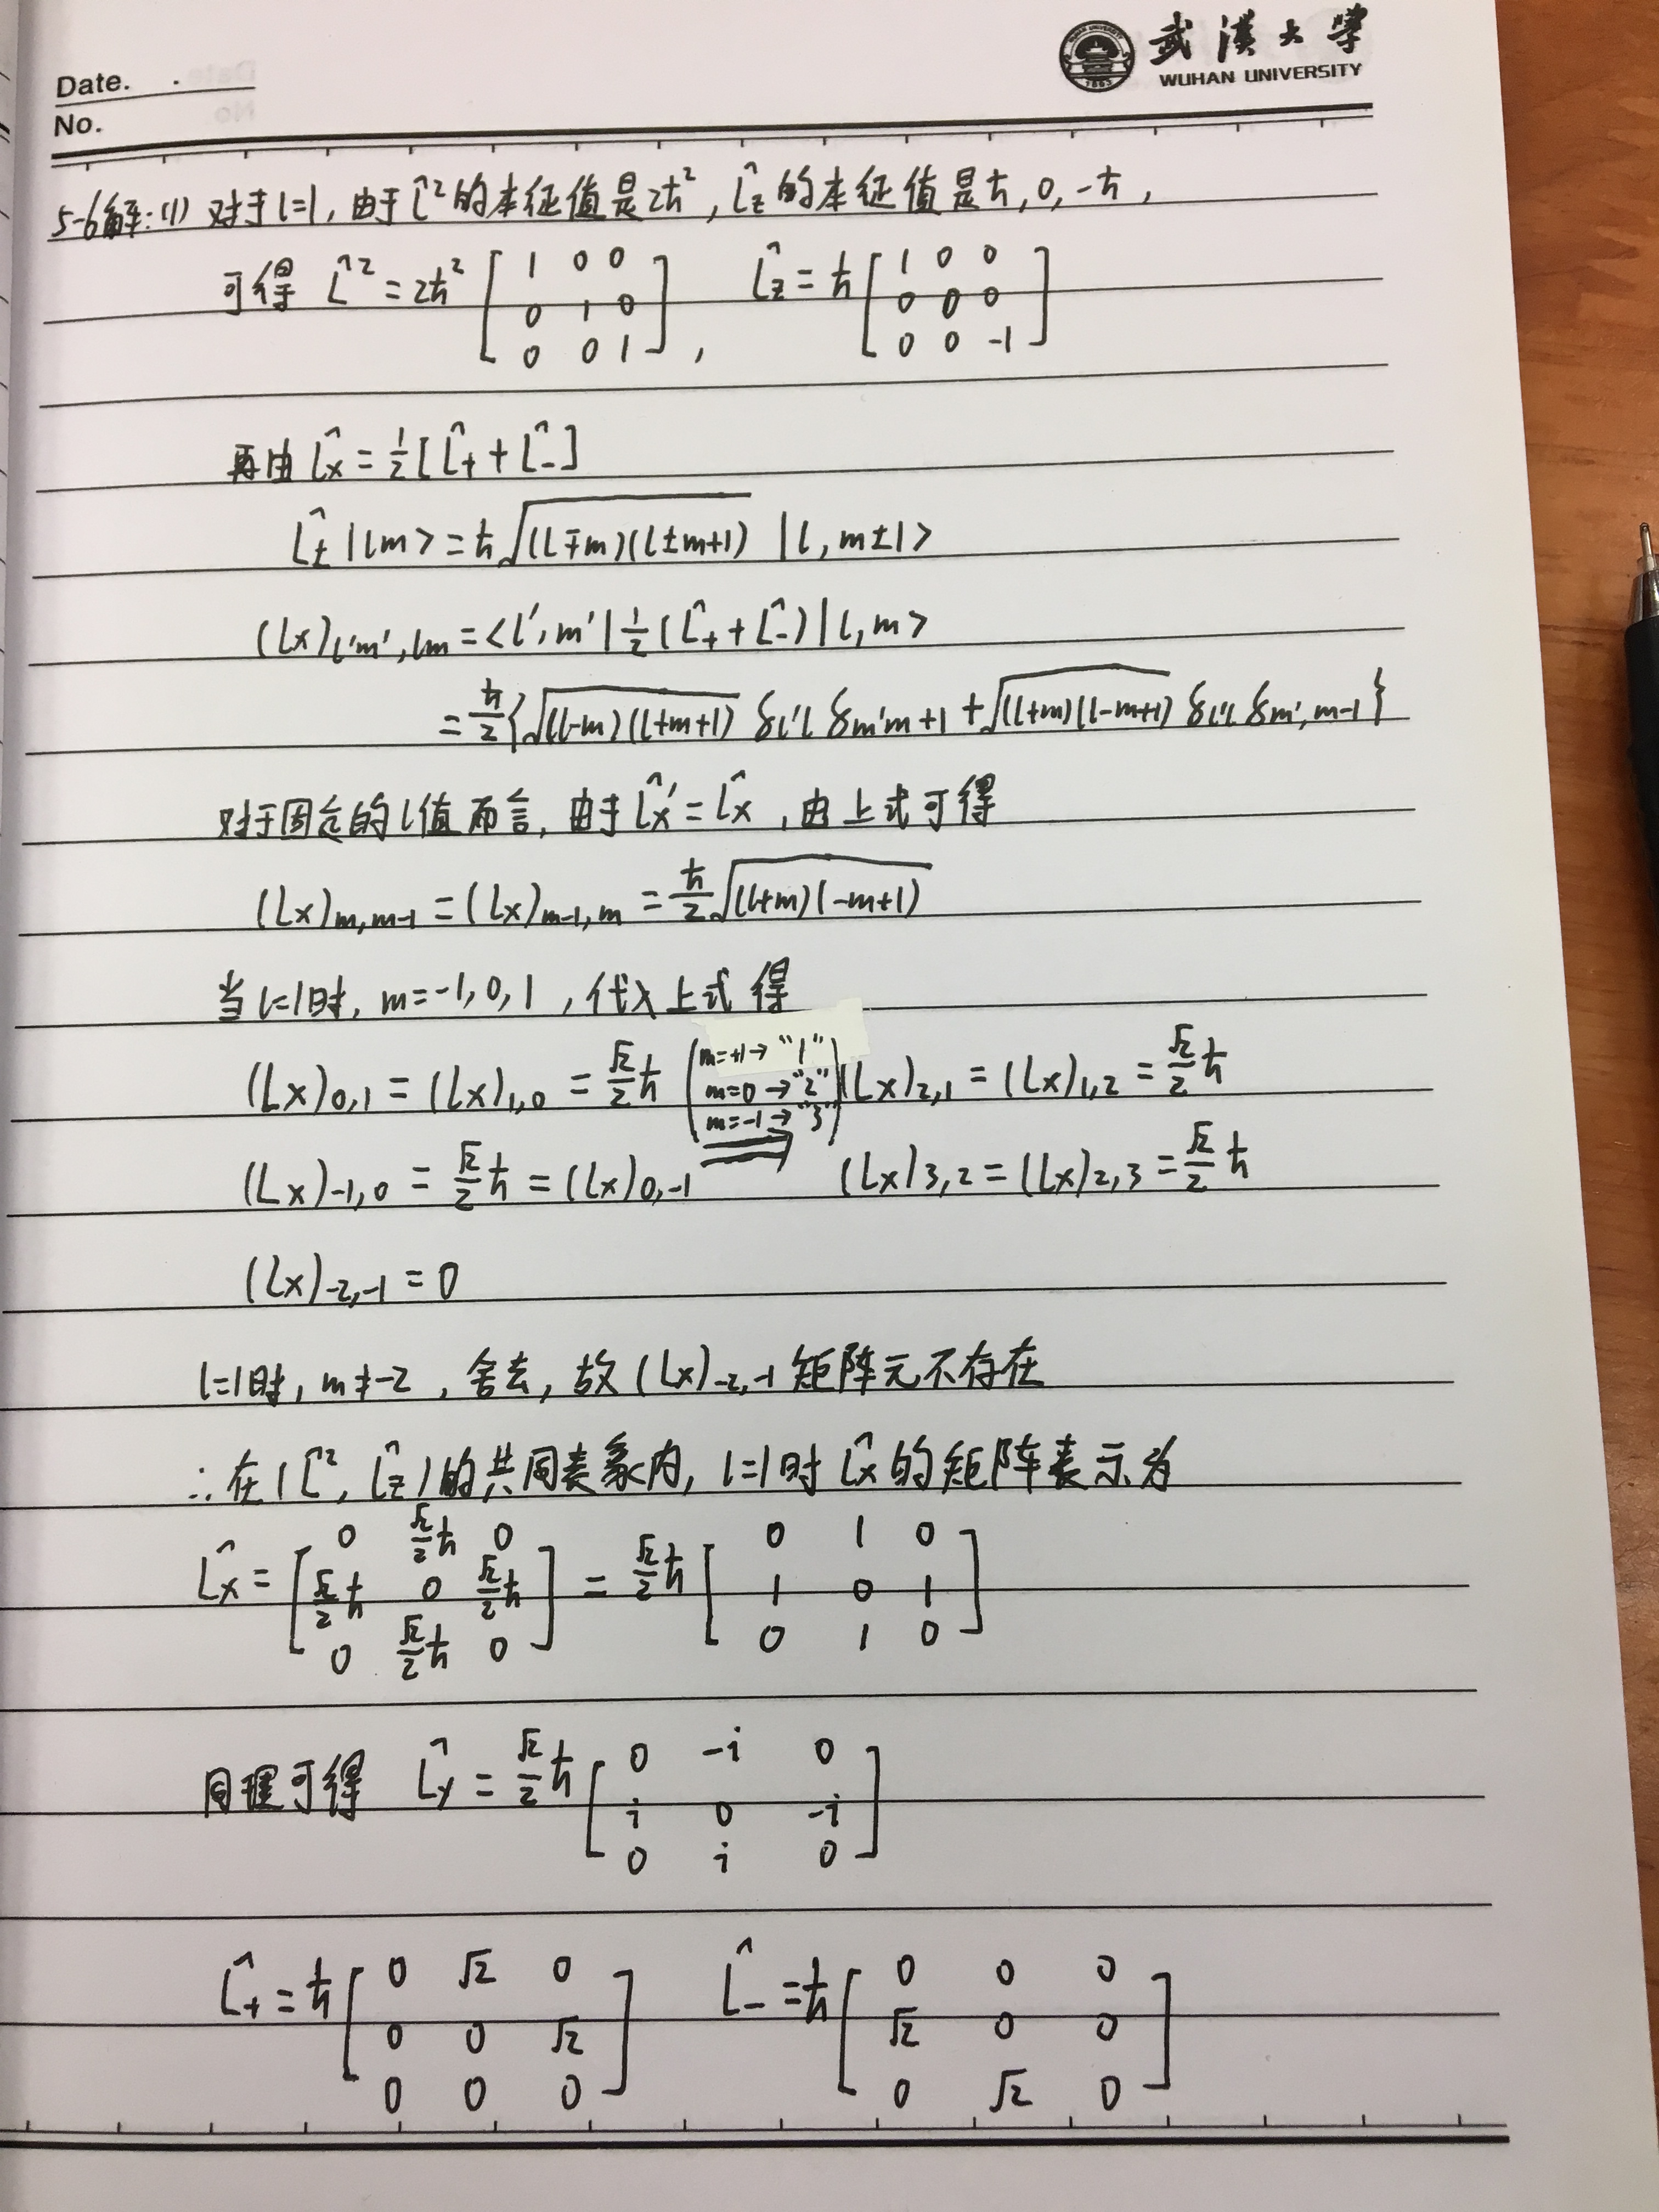 Date.
No.
武汉大学
WUHAN UNIVERSITY
5-6解:(1) 对于l=1, 由于L̂²的本征值是2ħ², L̂z的本征值是ħ, 0, -ħ,
可得 L̂² = 2ħ² [1 0 0; 0 1 0; 0 0 1], L̂z = ħ [1 0 0; 0 0 0; 0 0 -1]
再由 L̂x = ½[L̂₊ + L̂₋]
L̂± |lm> = ħ√((l∓m)(l±m+1)) |l, m±1>
(Lx)l'm',lm = <l', m'| ½ (L̂₊ + L̂₋) |l, m>
= ħ/2 {√((l-m)(l+m+1)) δl'l δm'm+1 + √((l+m)(l-m+1)) δl'l δm',m-1}
对于固定的l值而言, 由于L̂x' = L̂x, 由上式可得
(Lx)m,m-1 = (Lx)m-1,m = ħ/2 √((l+m)(-m+1))
当l=1时, m=-1, 0, 1, 代入上式得
(Lx)0,1 = (Lx)1,0 = √2/2 ħ (m=+1→"1" m=0→"2" m=-1→"3") (Lx)2,1 = (Lx)1,2 = √2/2 ħ
(Lx)-1,0 = √2/2 ħ = (Lx)0,-1 ⟹ (Lx)3,2 = (Lx)2,3 = √2/2 ħ
(Lx)-2,-1 = 0
l=1时, m≠-2, 舍去, 故(Lx)-2,-1矩阵元不存在
∴在(L̂², L̂z)的共同表象内, l=1时L̂x的矩阵表示为
L̂x = [0 √2/2ħ 0; √2/2ħ 0 √2/2ħ; 0 √2/2ħ 0] = √2/2 ħ [0 1 0; 1 0 1; 0 1 0]
同理可得 L̂y = √2/2 ħ [0 -i 0; i 0 -i; 0 i 0]
L̂₊ = ħ [0 √2 0; 0 0 √2; 0 0 0] L̂₋ = ħ [0 0 0; √2 0 0; 0 √2 0]